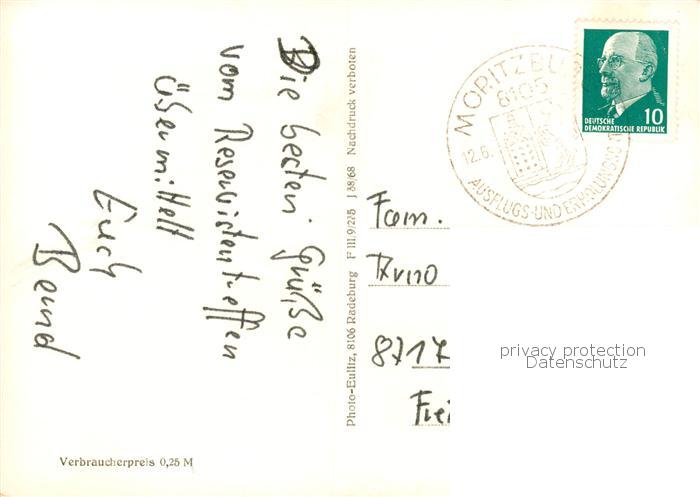 Die besten Grüße
vom Reservistentreffen
übermittelt
Euch
Bernd
Verbraucherpreis 0,25 M
Photo-Eulitz, 8106 Radeburg F III/9/275 J 38/68 Nachdruck verboten
MORITZBU
8105
12.6.
AUSFLUGS-UND ERHOLUNGSO
10
DEUTSCHE
DEMOKRATISCHE REPUBLIK
Fam.
Arno
8717
Frei
privacy protection
Datenschutz